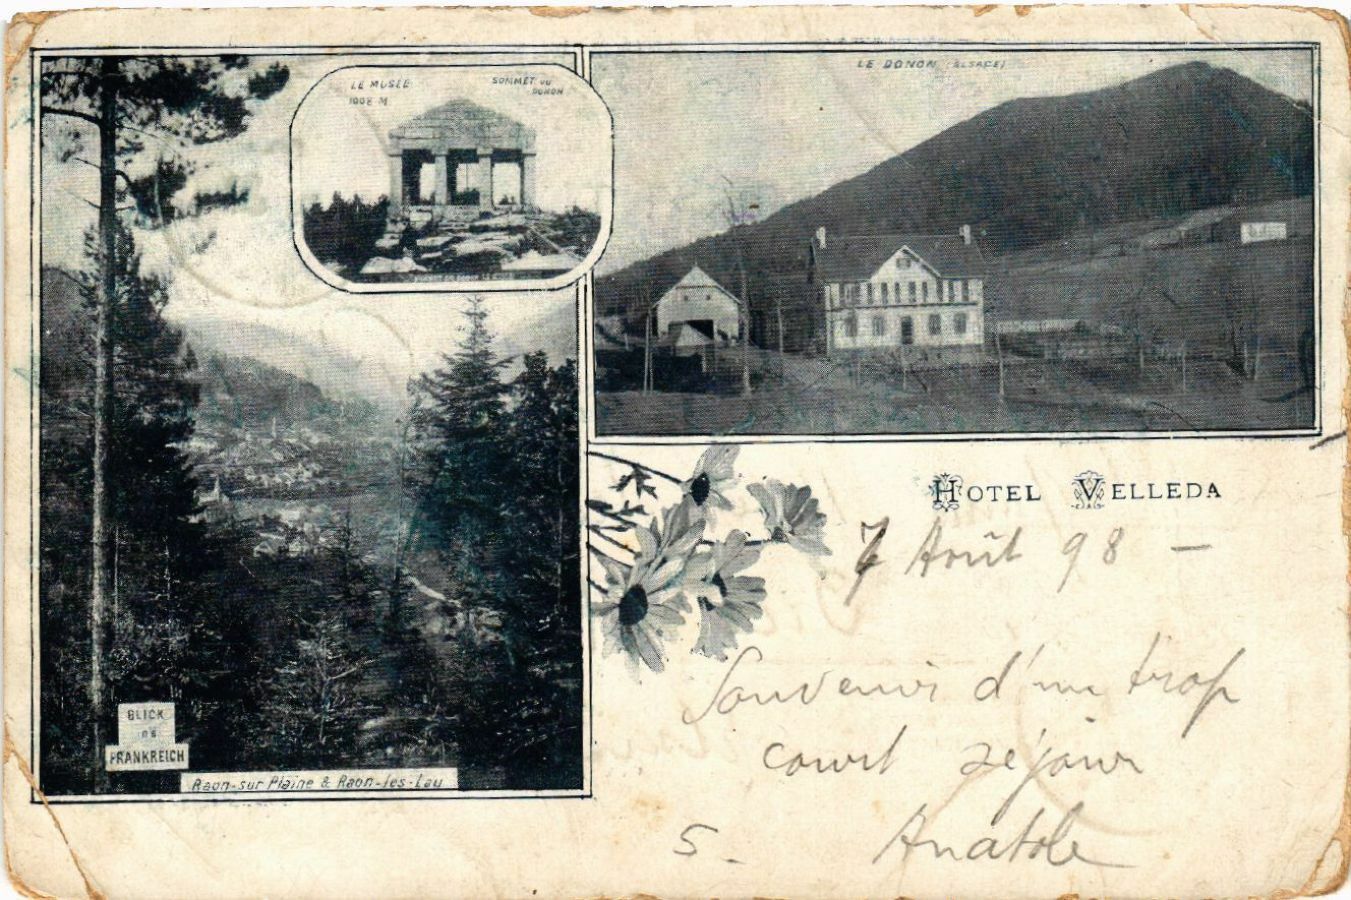 LE MUSÉE
1008 M
SOMMET DU
DONON
LE DONON (ALSACE)
HOTEL VELLEDA
7 Août 98 –
Souvenir d'un trop
court séjour
S. Anatole
BLICK
FRANKREICH
Raon-sur Plaine & Raon-les-Lau